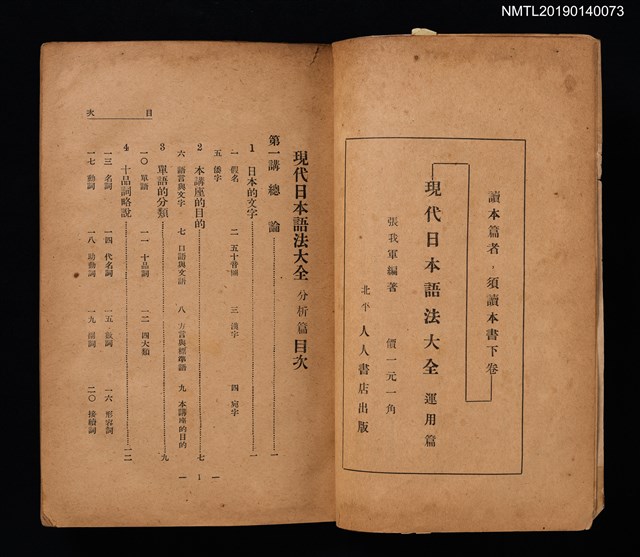 NMTL20190140073
讀本篇者，須讀本書下卷
現代日本語法大全 運用篇
張我軍編著 價一元一角
北平 人人書店出版
目次
現代日本語法大全 分析篇 目次
第一講 總論……一
1 日本的文字……一
一 假名 二 五十音圖 三 漢字 四 宛字
五 倭字
2 本講座的目的……七
六 語言與文字 七 口語與文語 八 方言與標準語 九 本講座的目的
3 單語的分類……九
一〇 單語 一一 十品詞 一二 四大類
4 十品詞略說……一二
一三 名詞 一四 代名詞 一五 數詞 一六 形容詞
一七 動詞 一八 助動詞 一九 副詞 二〇 接續詞
一 1 一